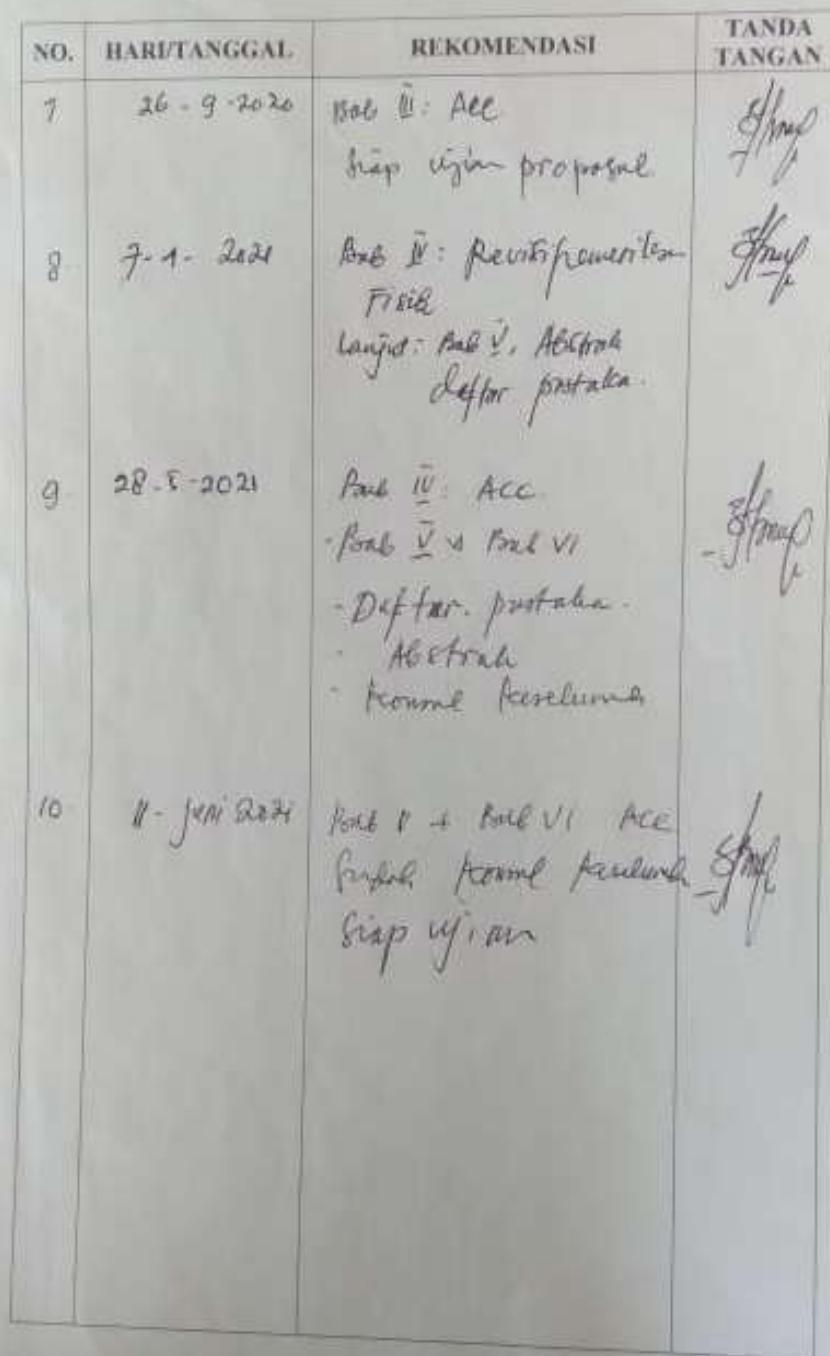 NO. HARI/TANGGAL REKOMENDASI TANDA TANGAN
7 26 - 9 - 2020 Bab III: Acc
Siap ujian proposal
8 7 - 1 - 2021 Bab IV: Revisi pemeriksaan
Fisik
Lanjut: Bab V, Abstrak
daftar pustaka.
9 28 - 5 - 2021 Bab IV: ACC
- Bab V & Bab VI
- Daftar. pustaka.
- Abstrak
- Konsul keseluruhan
10 11 - Juni 2021 Bab V + Bab VI ACC
Sudah konsul keseluruhan
Siap ujian